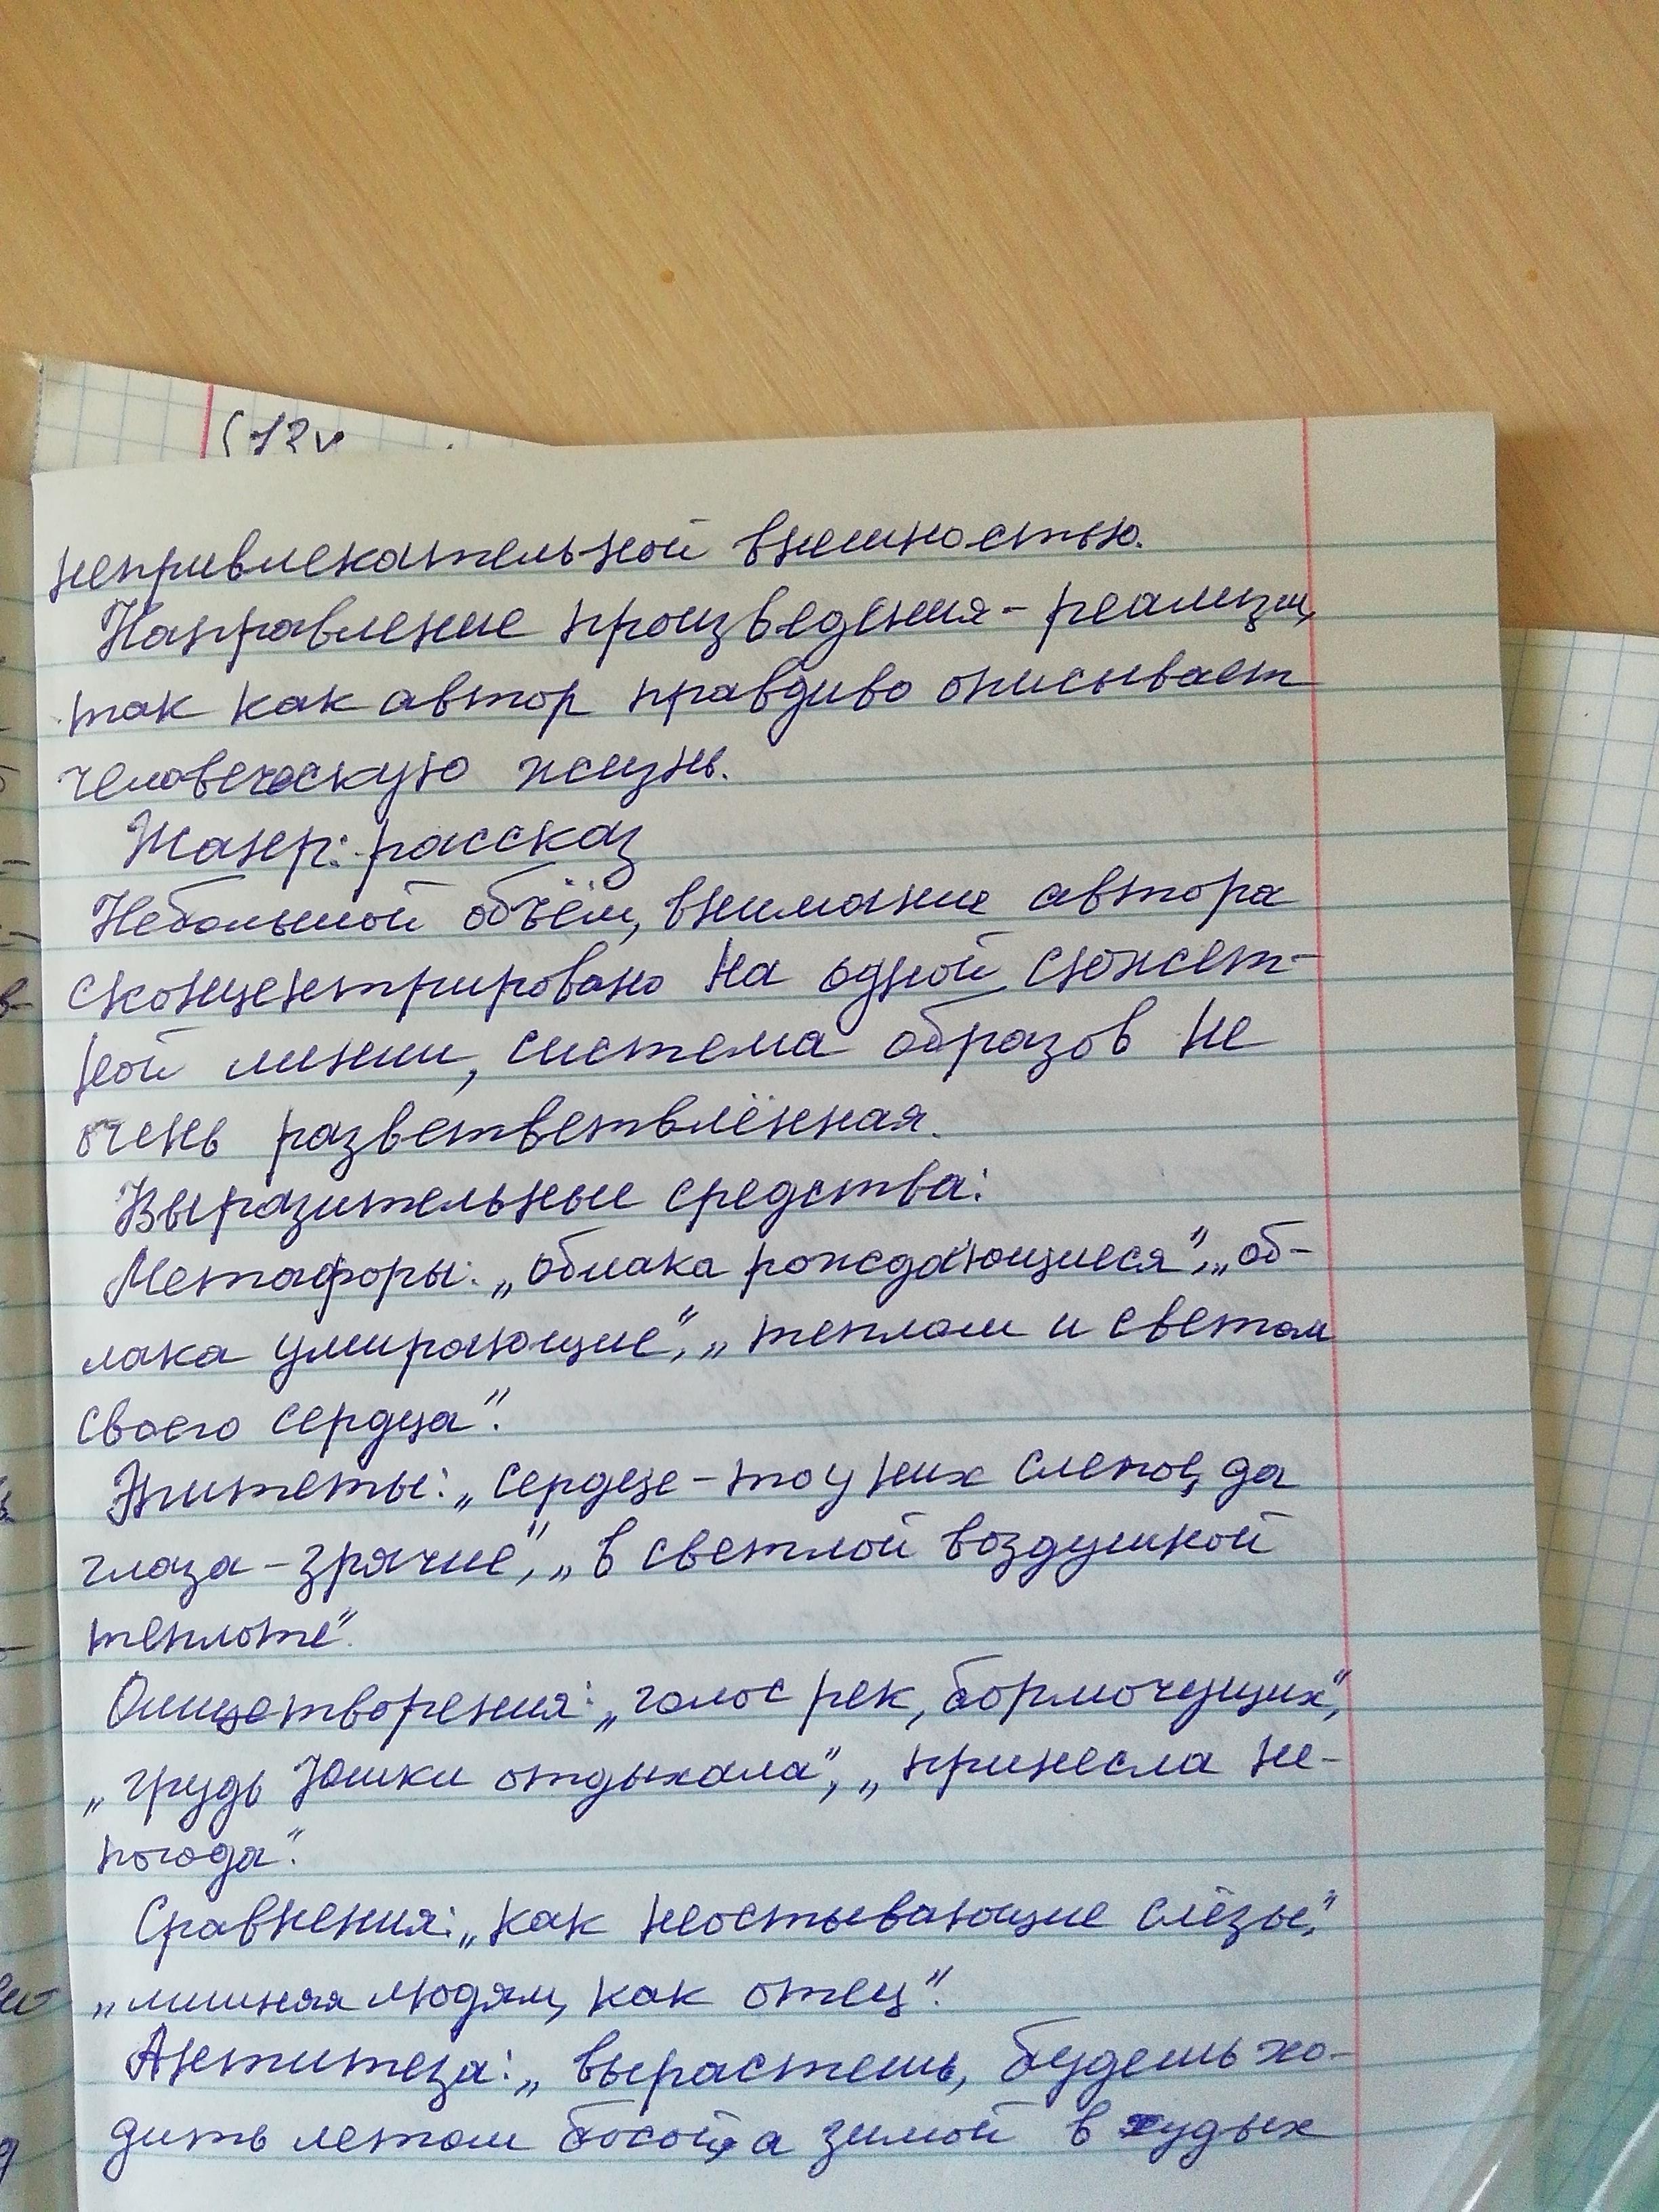 непривлекательной внешностью.
Направление произведения - реализм,
так как автор правдиво описывает
человеческую жизнь.
Жанр: рассказ
Небольшой объём, внимание автора
сконцентрировано на одной сюжет-
ной линии, система образов не
очень разветветвлённая.
Выразительные средства:
Метафоры: „облака рождающиеся", „об-
лака умирающие", „теплом и светом
своего сердца".
Эпитеты: „сердце-то у них слепое, да
глаза-зрячие", „в светлой воздушной
теплоте".
Олицетворения: „голос рек, бормочущих",
„грудь Юшки отдыхала", „принесла не-
погода".
Сравнения: „как неостывающие слёзы",
„лишняя людям, как отец".
Антитеза: „вырастешь, будешь хо-
дить летом босой, а зимой в худых